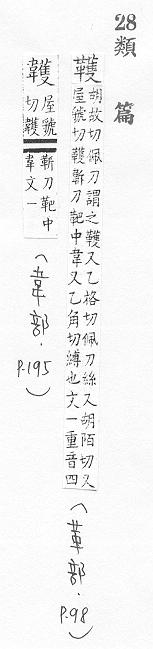 28類篇
韄胡故切佩刀謂之韄又乙格切佩刀絲又胡陌切又
屋虢切韄䩨刀靶中韋又乙角切縛也文一重音四
(革部.P.98)
韄屋虢切韄
靳刀靶中韋文一
(韋部.P.195)